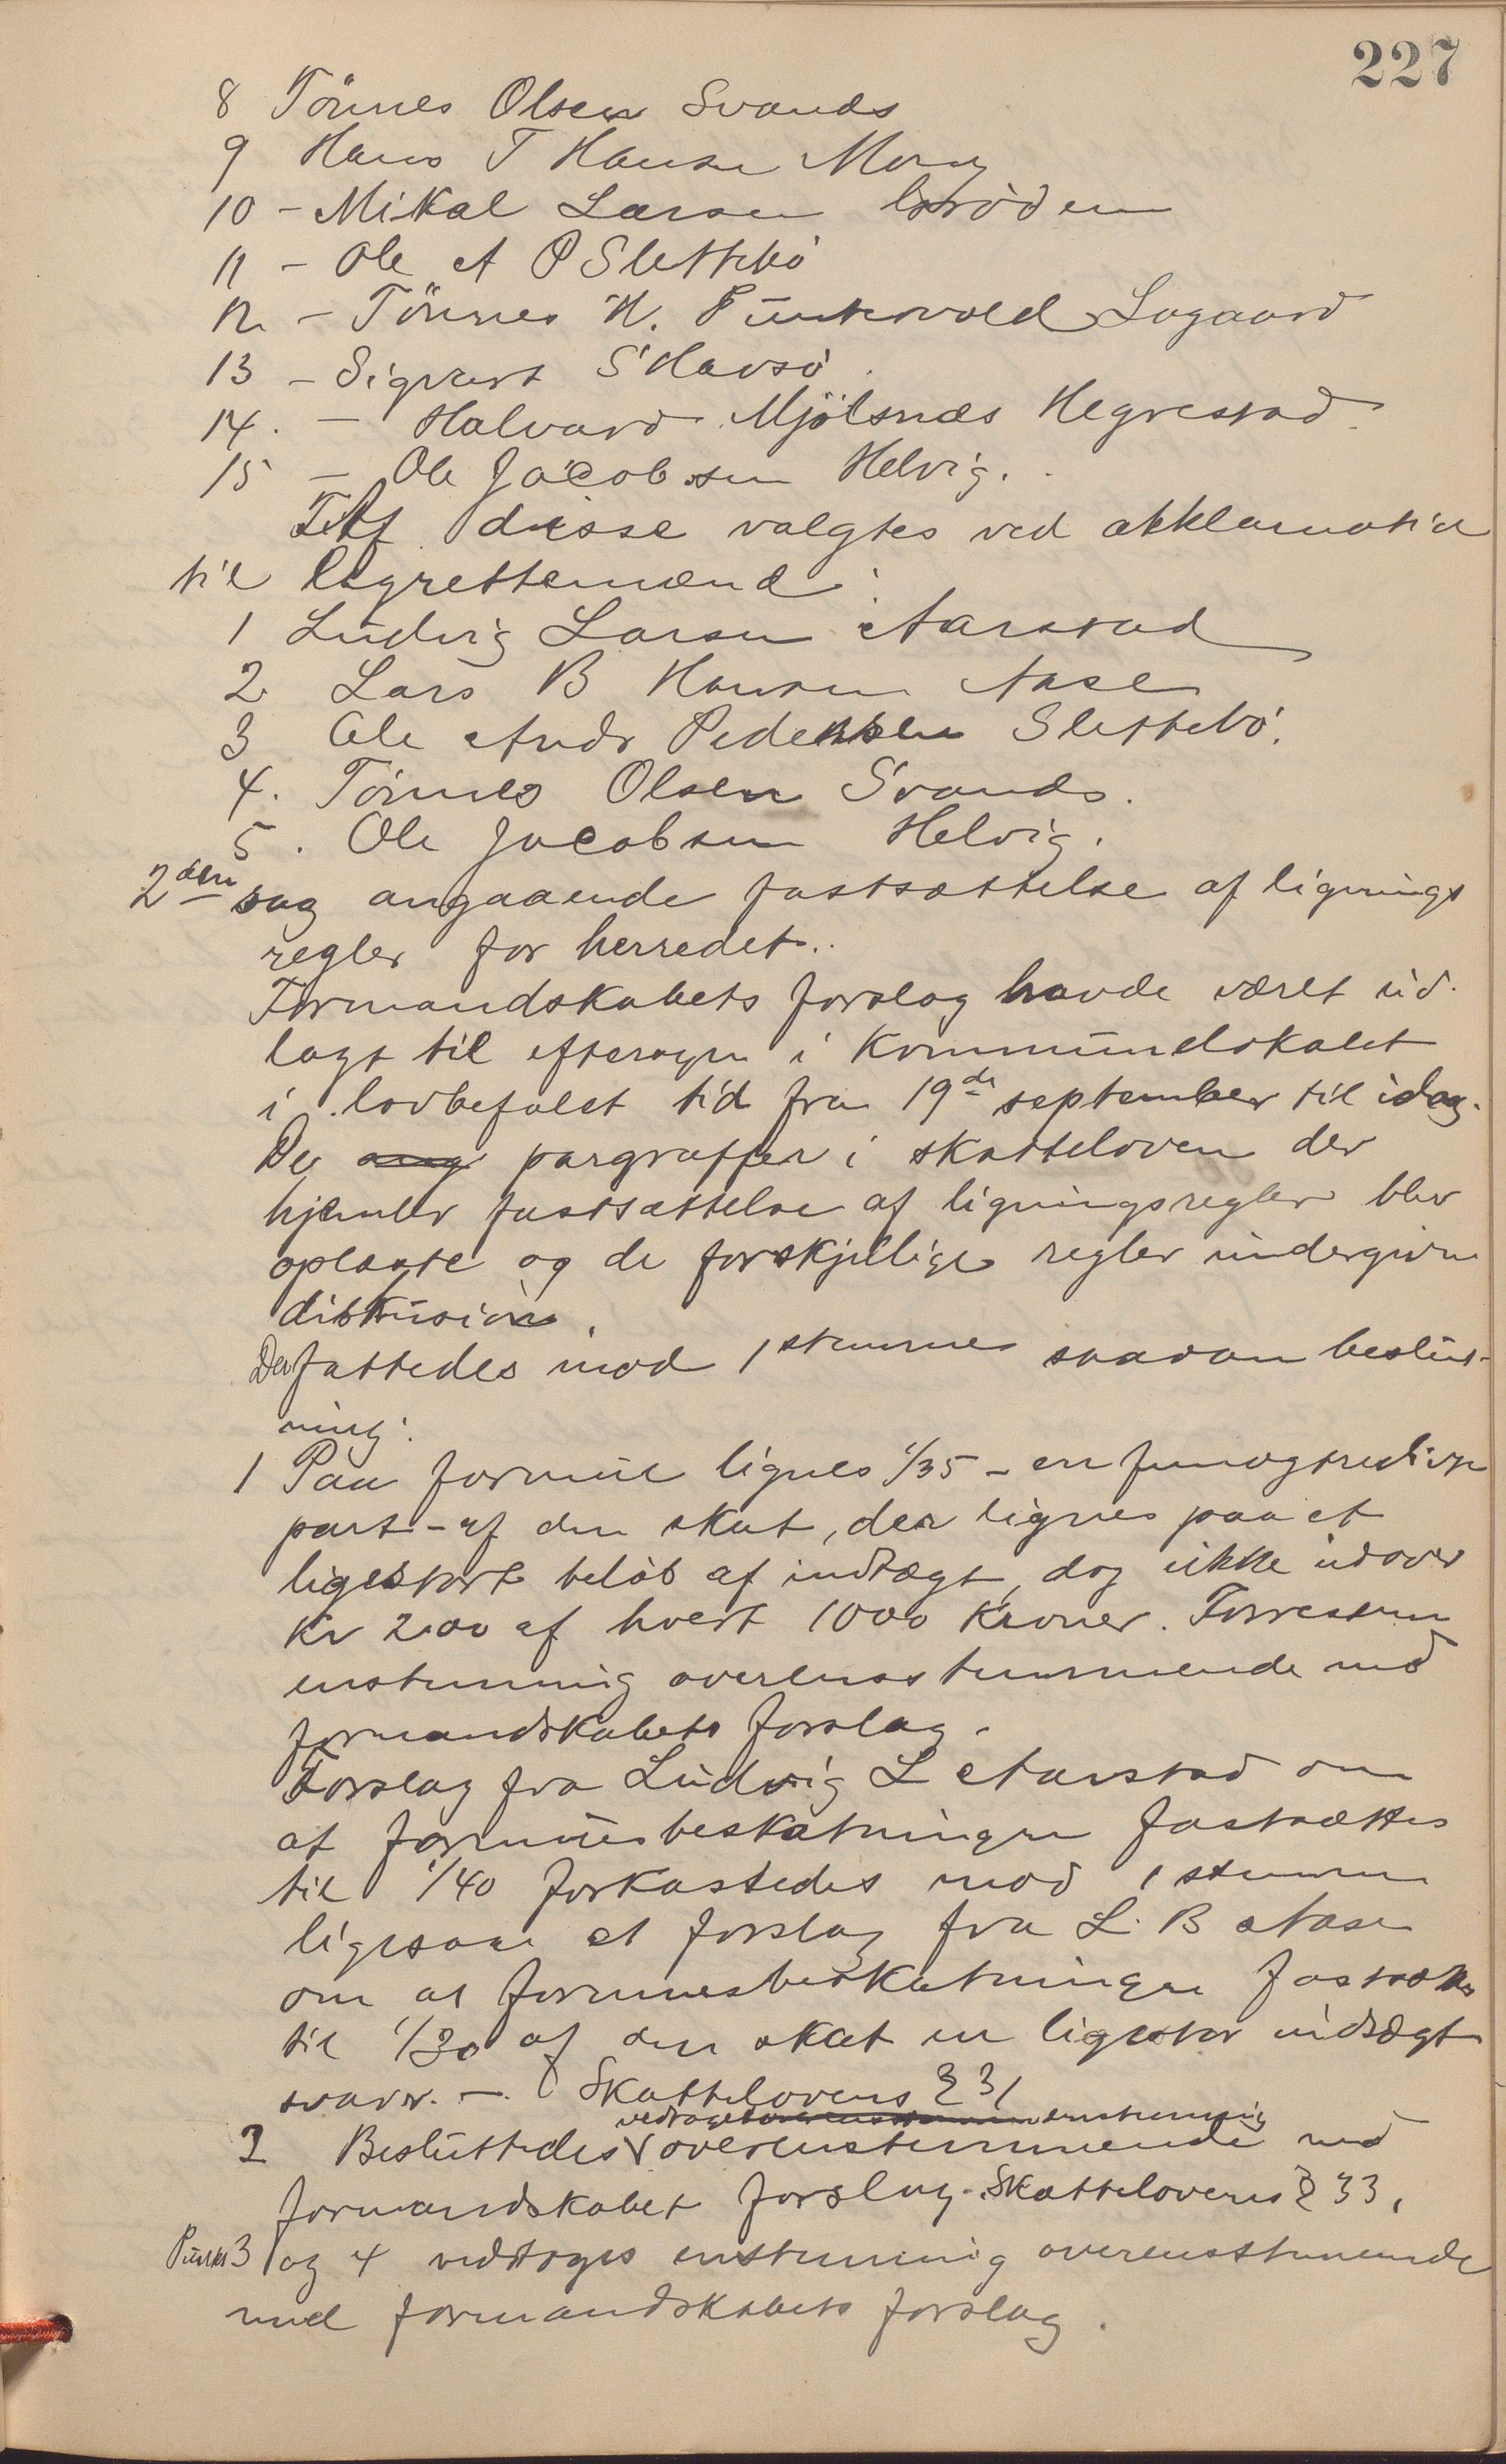 227
8 Tönnes Olsen Svands
9 Hans T Hansen Mong
10 - Mikal Larsen Gröden
11 - Ole A P Slettebö
12 - Tönnes H. Puntervold Lagaard
13 - Sigvart S Havsö
14. - Halvard Mjölsnæs Hegrestad
15 - Ole Jacobsen Helvig.
Af disse valgtes ved akklamation
til lagrettemænd:
1 Ludvig Larsen Aarstad
2 Lars B Hansen Aase
3 Ole Andr Pedersen Slettebö.
4. Tönnes Olsen Svands.
5. Ole Jacobsen Helvig.
2den sag angaaende fastsættelse af lignings
regler for herredet.
Formandskabets forslag havde været ud-
lagt til eftersyn i Kommunelokalet
i lovbefalet tid fra 19de september til idag.
De ang pargraffer i skatteloven der
hjemler fastsættelse af ligningsregler blev
oplæste og de forskjellige regler undergivne
diskusion.
Der fattedes mod 1 stemme saadan beslut-
ning:
1 Paa formue lignes 1/35 - en femogtredive
part - af den skat, der lignes paa et
ligestort belöb af indtægt, dog ikke udover
Kr 2.00 af hvert 1000 Kroner. Forresten
enstemmig overensstemmende med
formandskabets forslag.
Forslag fra Ludvig L Aarstad om
at formuesbeskatningen fastsættes
til 1/40 forkastedes mod 1 stemme
ligesaa et forslag fra L. B Aase
om at formuesbeskatningen fastsættes
til 1/30 af den skat en ligestor indtægt
svarer. - Skattelovens § 31
vedtaget overensstemm enstemmig
2 Besluttedes overenstemmende med
formandskabet forslag. Skattelovens § 33,
Punkt 3 og 4 vedtoges enstemmig overensstemende
med formandskabets forslag.